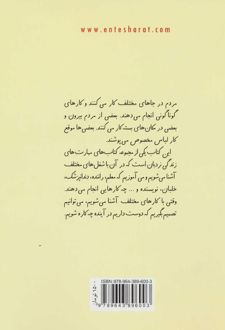 www.entesharat.com
مردم در جاهای مختلف کار می کنند و کارهای
گوناگونی انجام می دهند. بعضی از مردم بیرون و
بعضی در مکان های بسته کار می کنند. بعضی ها موقع
کار لباس مخصوص می پوشند.
این کتاب یکی از مجموعه کتاب های مهارت های
زندگی زدبان است که در آن با شغل های مختلف
آشنا می شویم و می آموزیم که معلم، راننده، دندانپزشک،
خلبان، نویسنده و ... چه کارهایی انجام می دهند.
وقتی با کارهای مختلف آشنا می شویم، می توانیم
تصمیم بگیریم که دوست داریم در آینده چه کاره شویم.
ISBN: 978-964-389-600-3
9789643896003
تومان